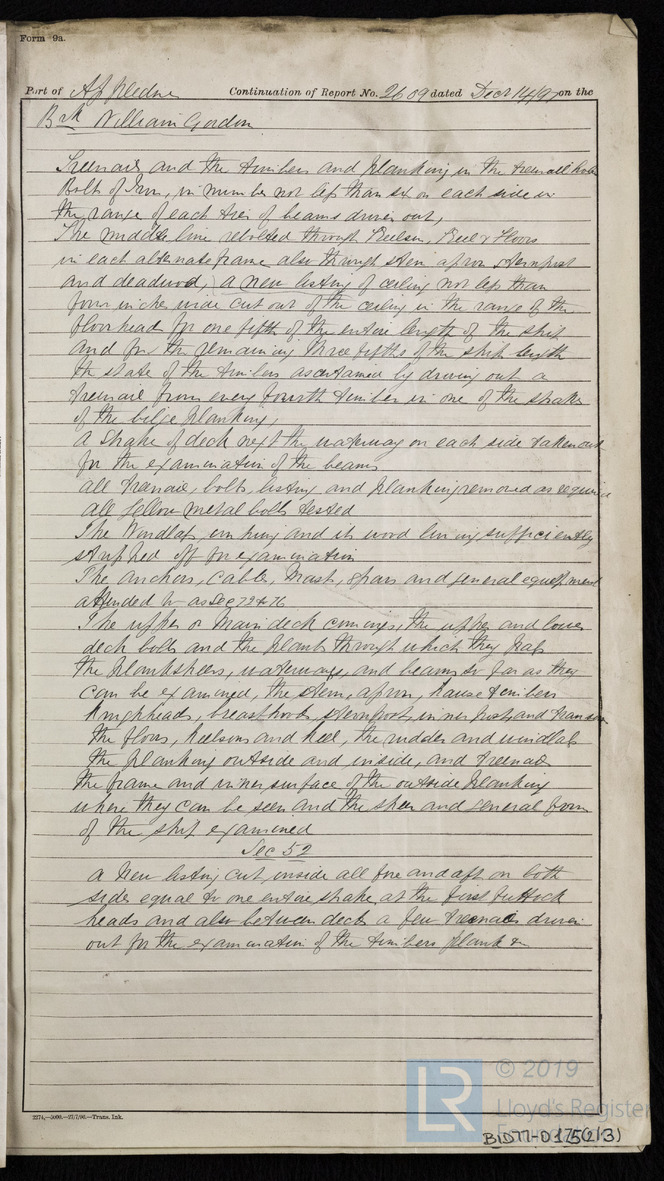 Form 9a.
Port of Appledore Continuation of Report No. 2609 dated Decr 14/97 on the
Brk William Gordon
Treenails and the timbers and planking in the treenail holes
Bolts of Iron, in number not less than six on each side in
the range of each tier of beams driven out,
The middle line rebolted through Keelson, Keel & Floors
in each alternate frame also through stem apron sternpost
and deadwood, a new listing of ceiling not less than
four inches wide cut out of the ceiling in the range of the
floorheads for one fifth of the entire length of the ship
and for the remaining three fifths of the ship length
the state of the timbers ascertained by driving out a
treenail from every fourth timber in one of the strakes
of the bilge planking,
a strake of deck next the waterway on each side taken out
for the examination of the beams
all treenails, bolts, listing and planking removed as required
all yellow metal bolts tested
The Windlass unhung and its wood lining sufficiently
stripped off for examination
The anchors, cables, Mast, spars and general equipment
attended to as Sec 72 & 76
The upper or Main deck comings, the upper and lower
deck bolts and the planks through which they pass
the planksheers, waterways, and beams so far as they
can be examined, the stem, apron, hause timbers
knightheads, breasthooks, sternpost, inner post, and transom
the floors, keelsons and keel, the rudder and windlass
the planking outside and inside, and treenails
the frame and inner surface of the outside planking
where they can be seen and the sheer and general form
of the ship examined
Sec 52
a New listing cut inside all fore and aft on both
sides equal to one entire strake, at the first futtock
heads and also between decks a few treenails driven
out for the examination of the timbers plank &c
2274,—3000.—27/7/96.—Trans. Ink.
LR © 2019
Lloyd's Register
BLD77-0175(2/3)